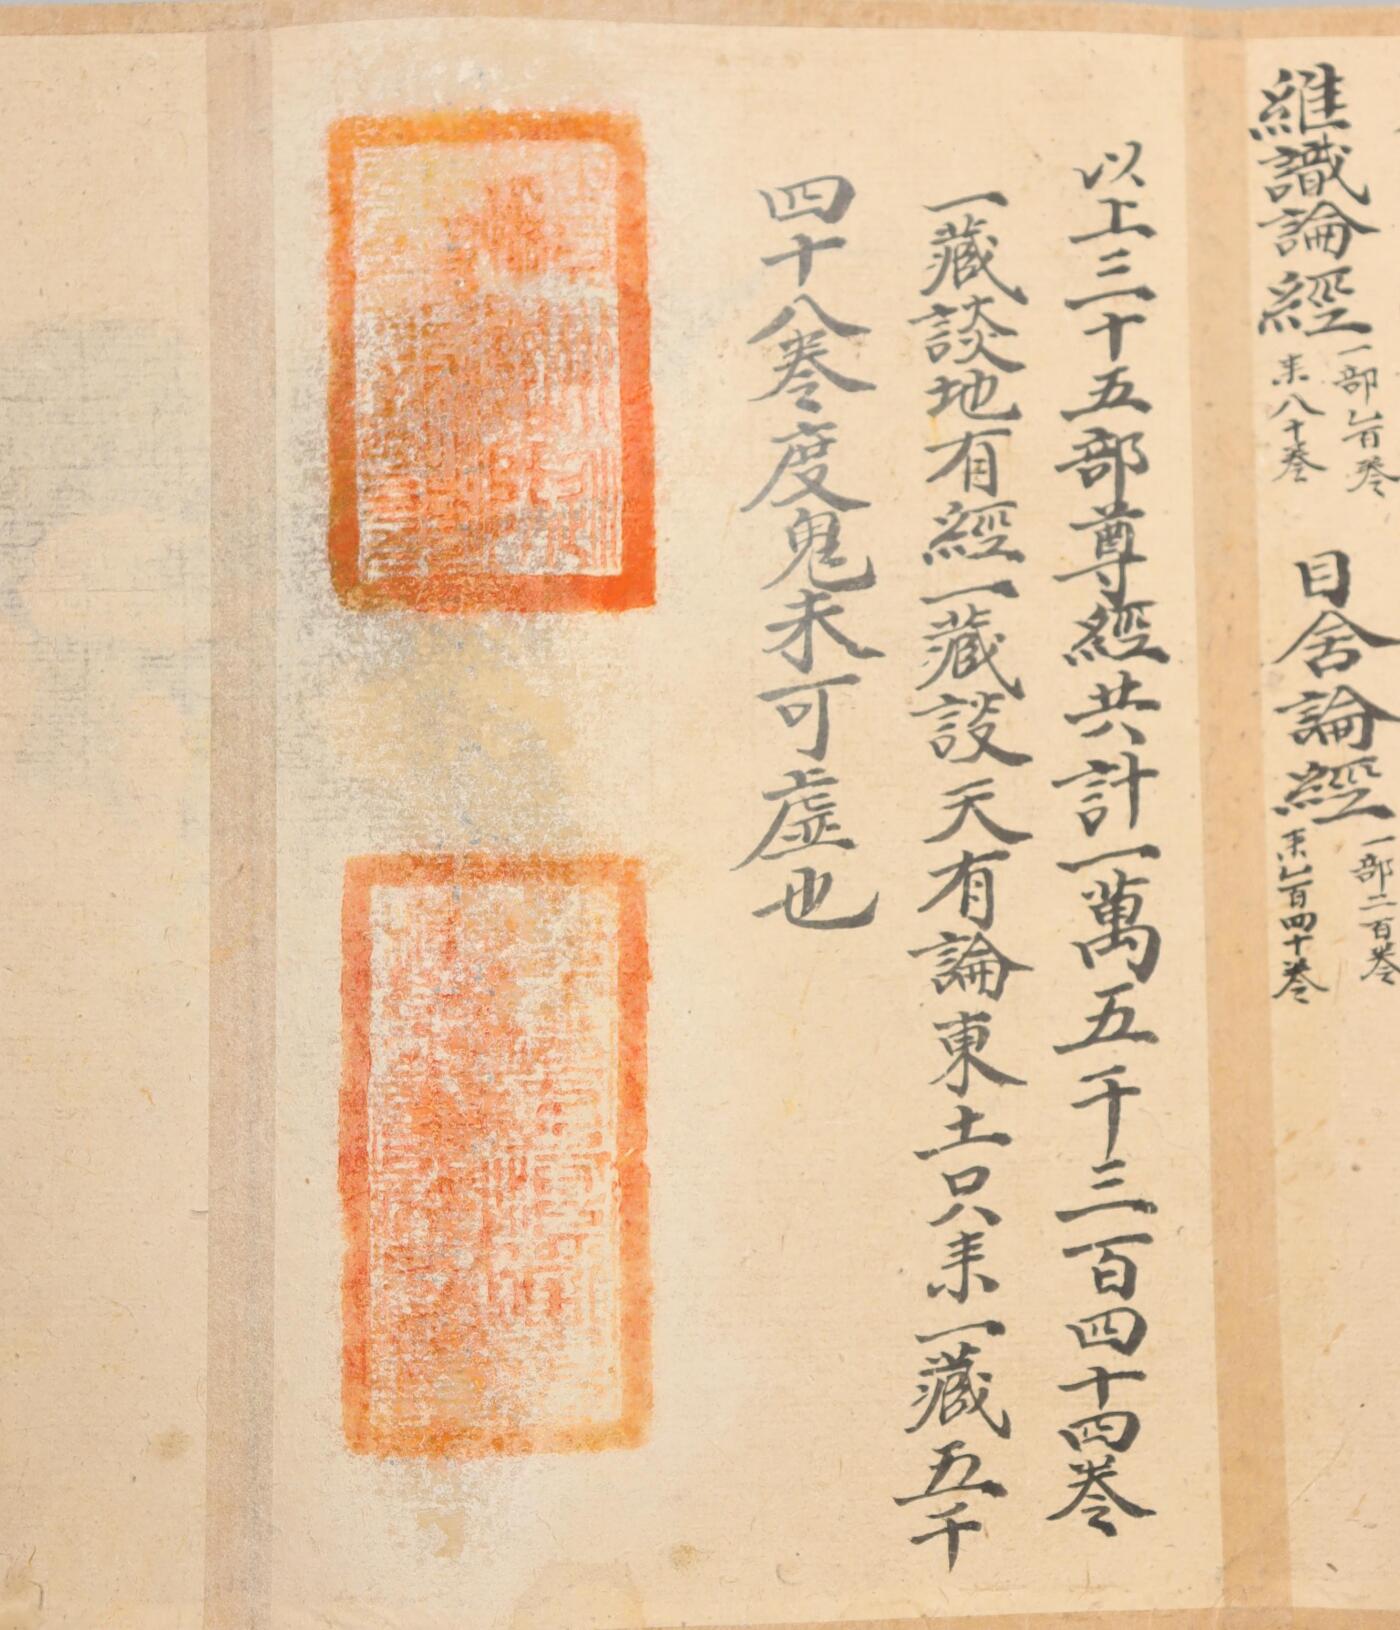 維識論經
一部乙百卷
来八十卷
目舍論經
一部二百卷
来乙百四十卷
以上三十五部尊經共計一萬五千三百四十四卷
一藏談地有經一藏談天有論東土只来一藏五千
四十八卷度鬼未可虛也